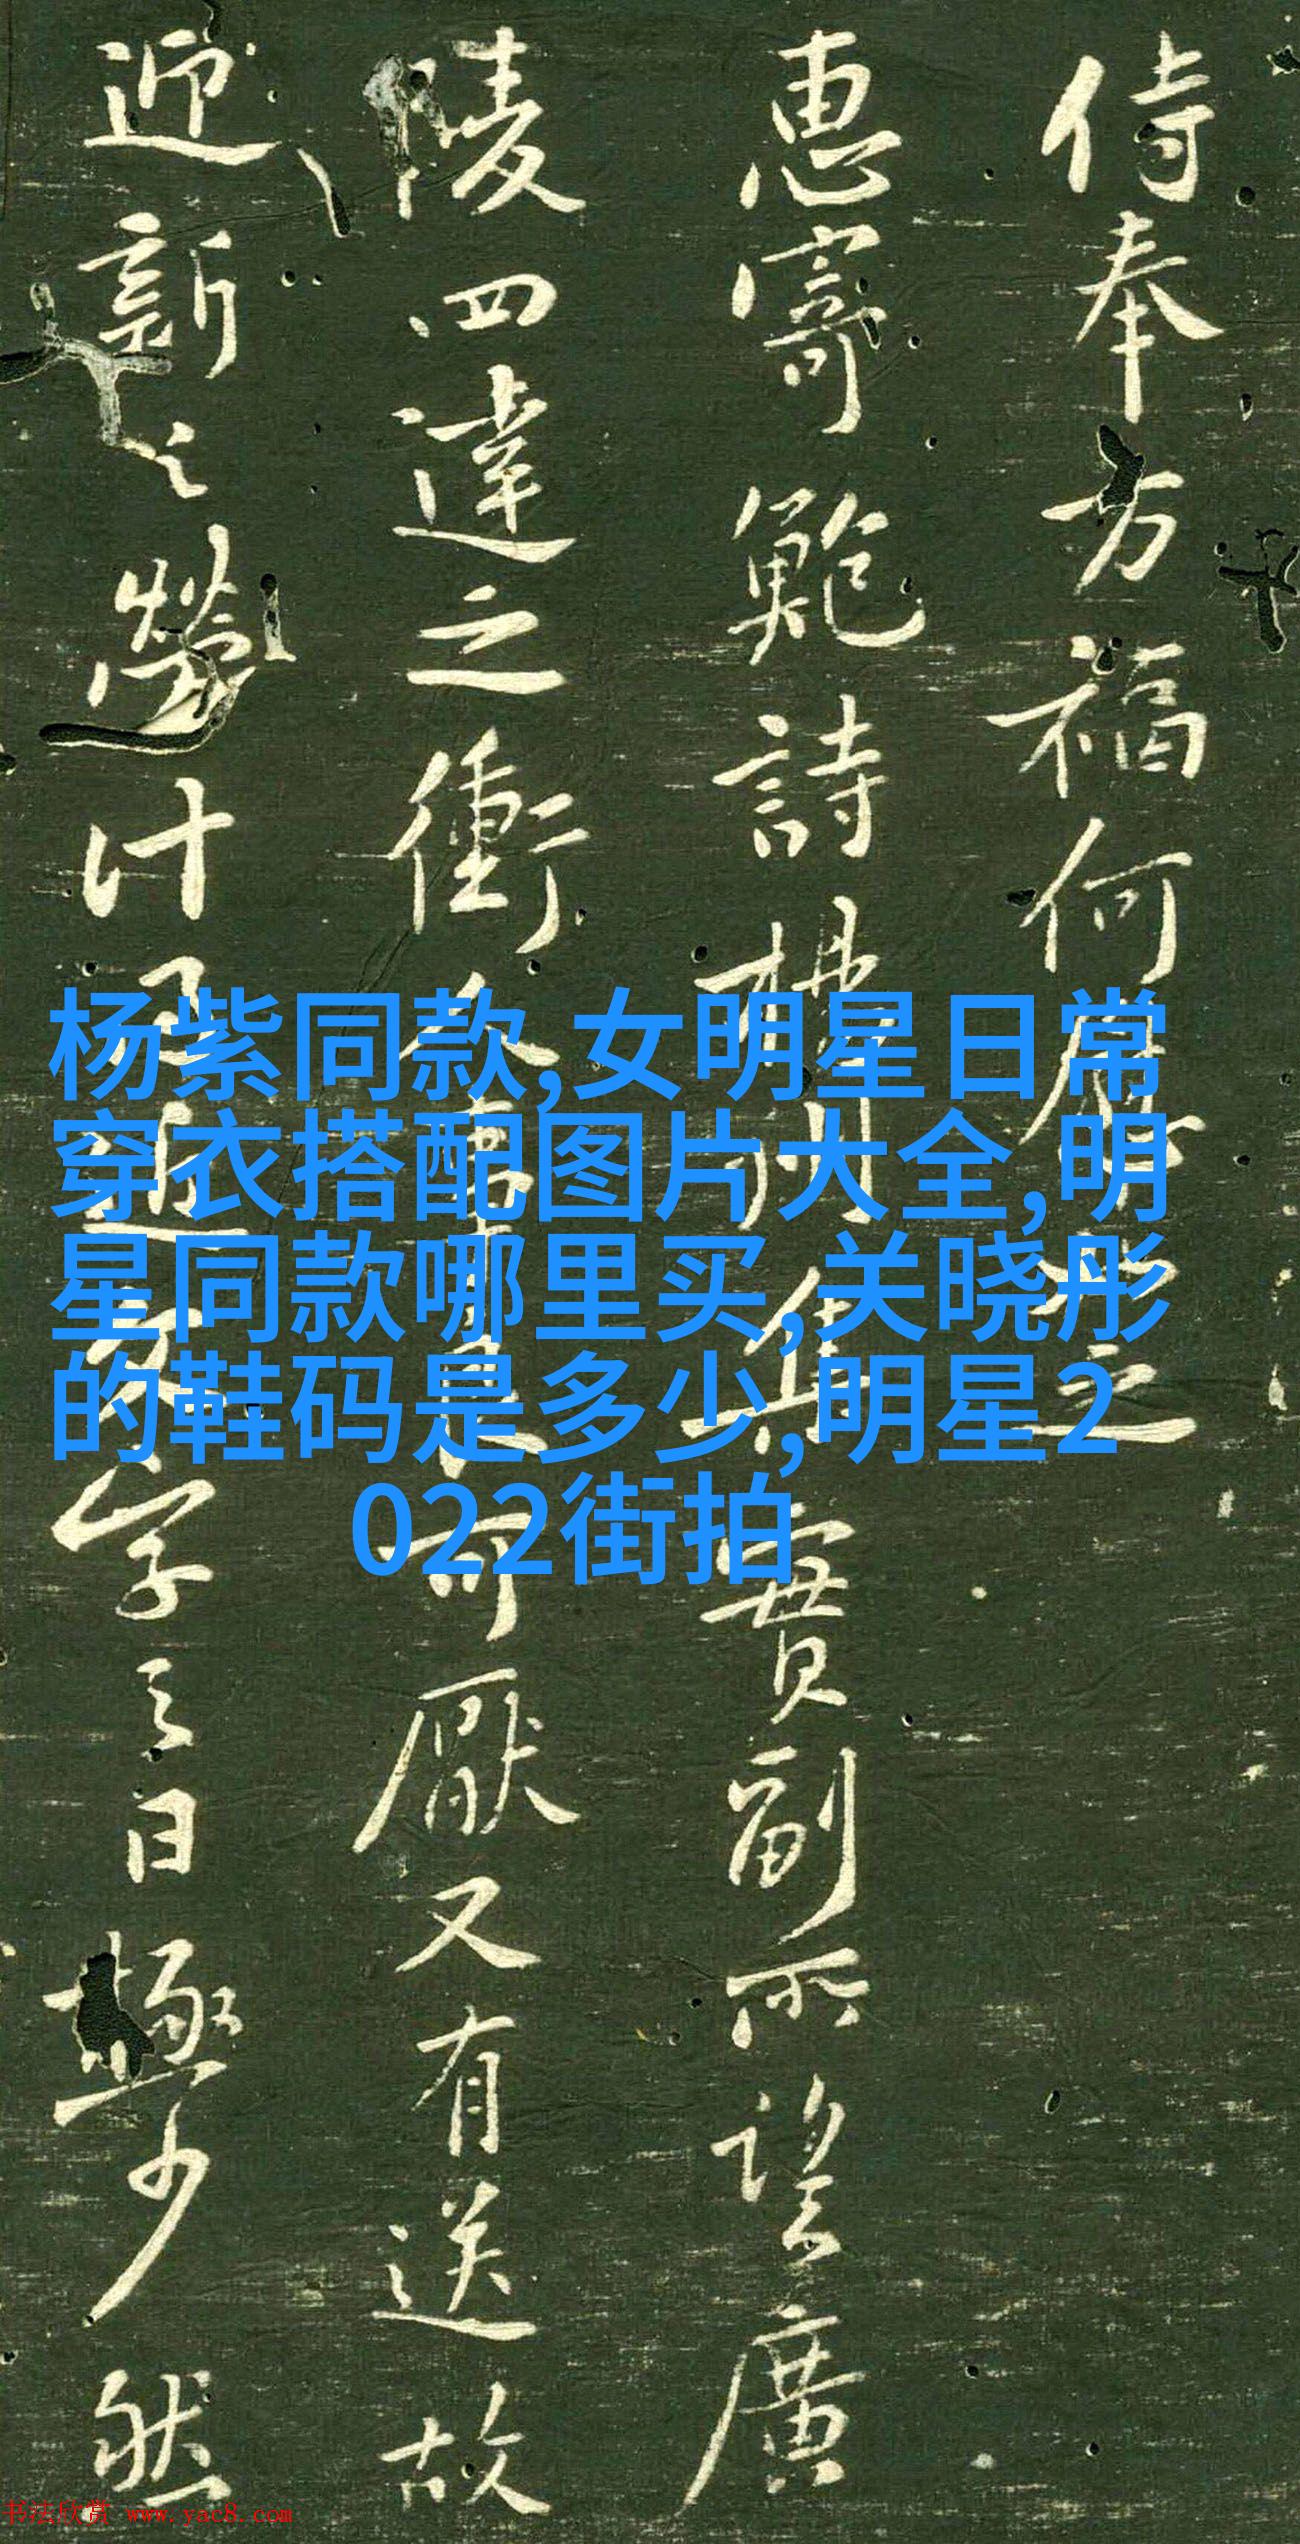 侍奉万福何慰如之
惠寄鲍詩
實副所望廣
陵四達之衝
可厭又有送故
迎新之勞計
字之日極少然
杨紫同款,女明星日常
穿衣搭配图片大全,明
星同款哪里买,关晓彤
的鞋码是多少,明星2
022街拍
书法欣赏 www.yac8.com